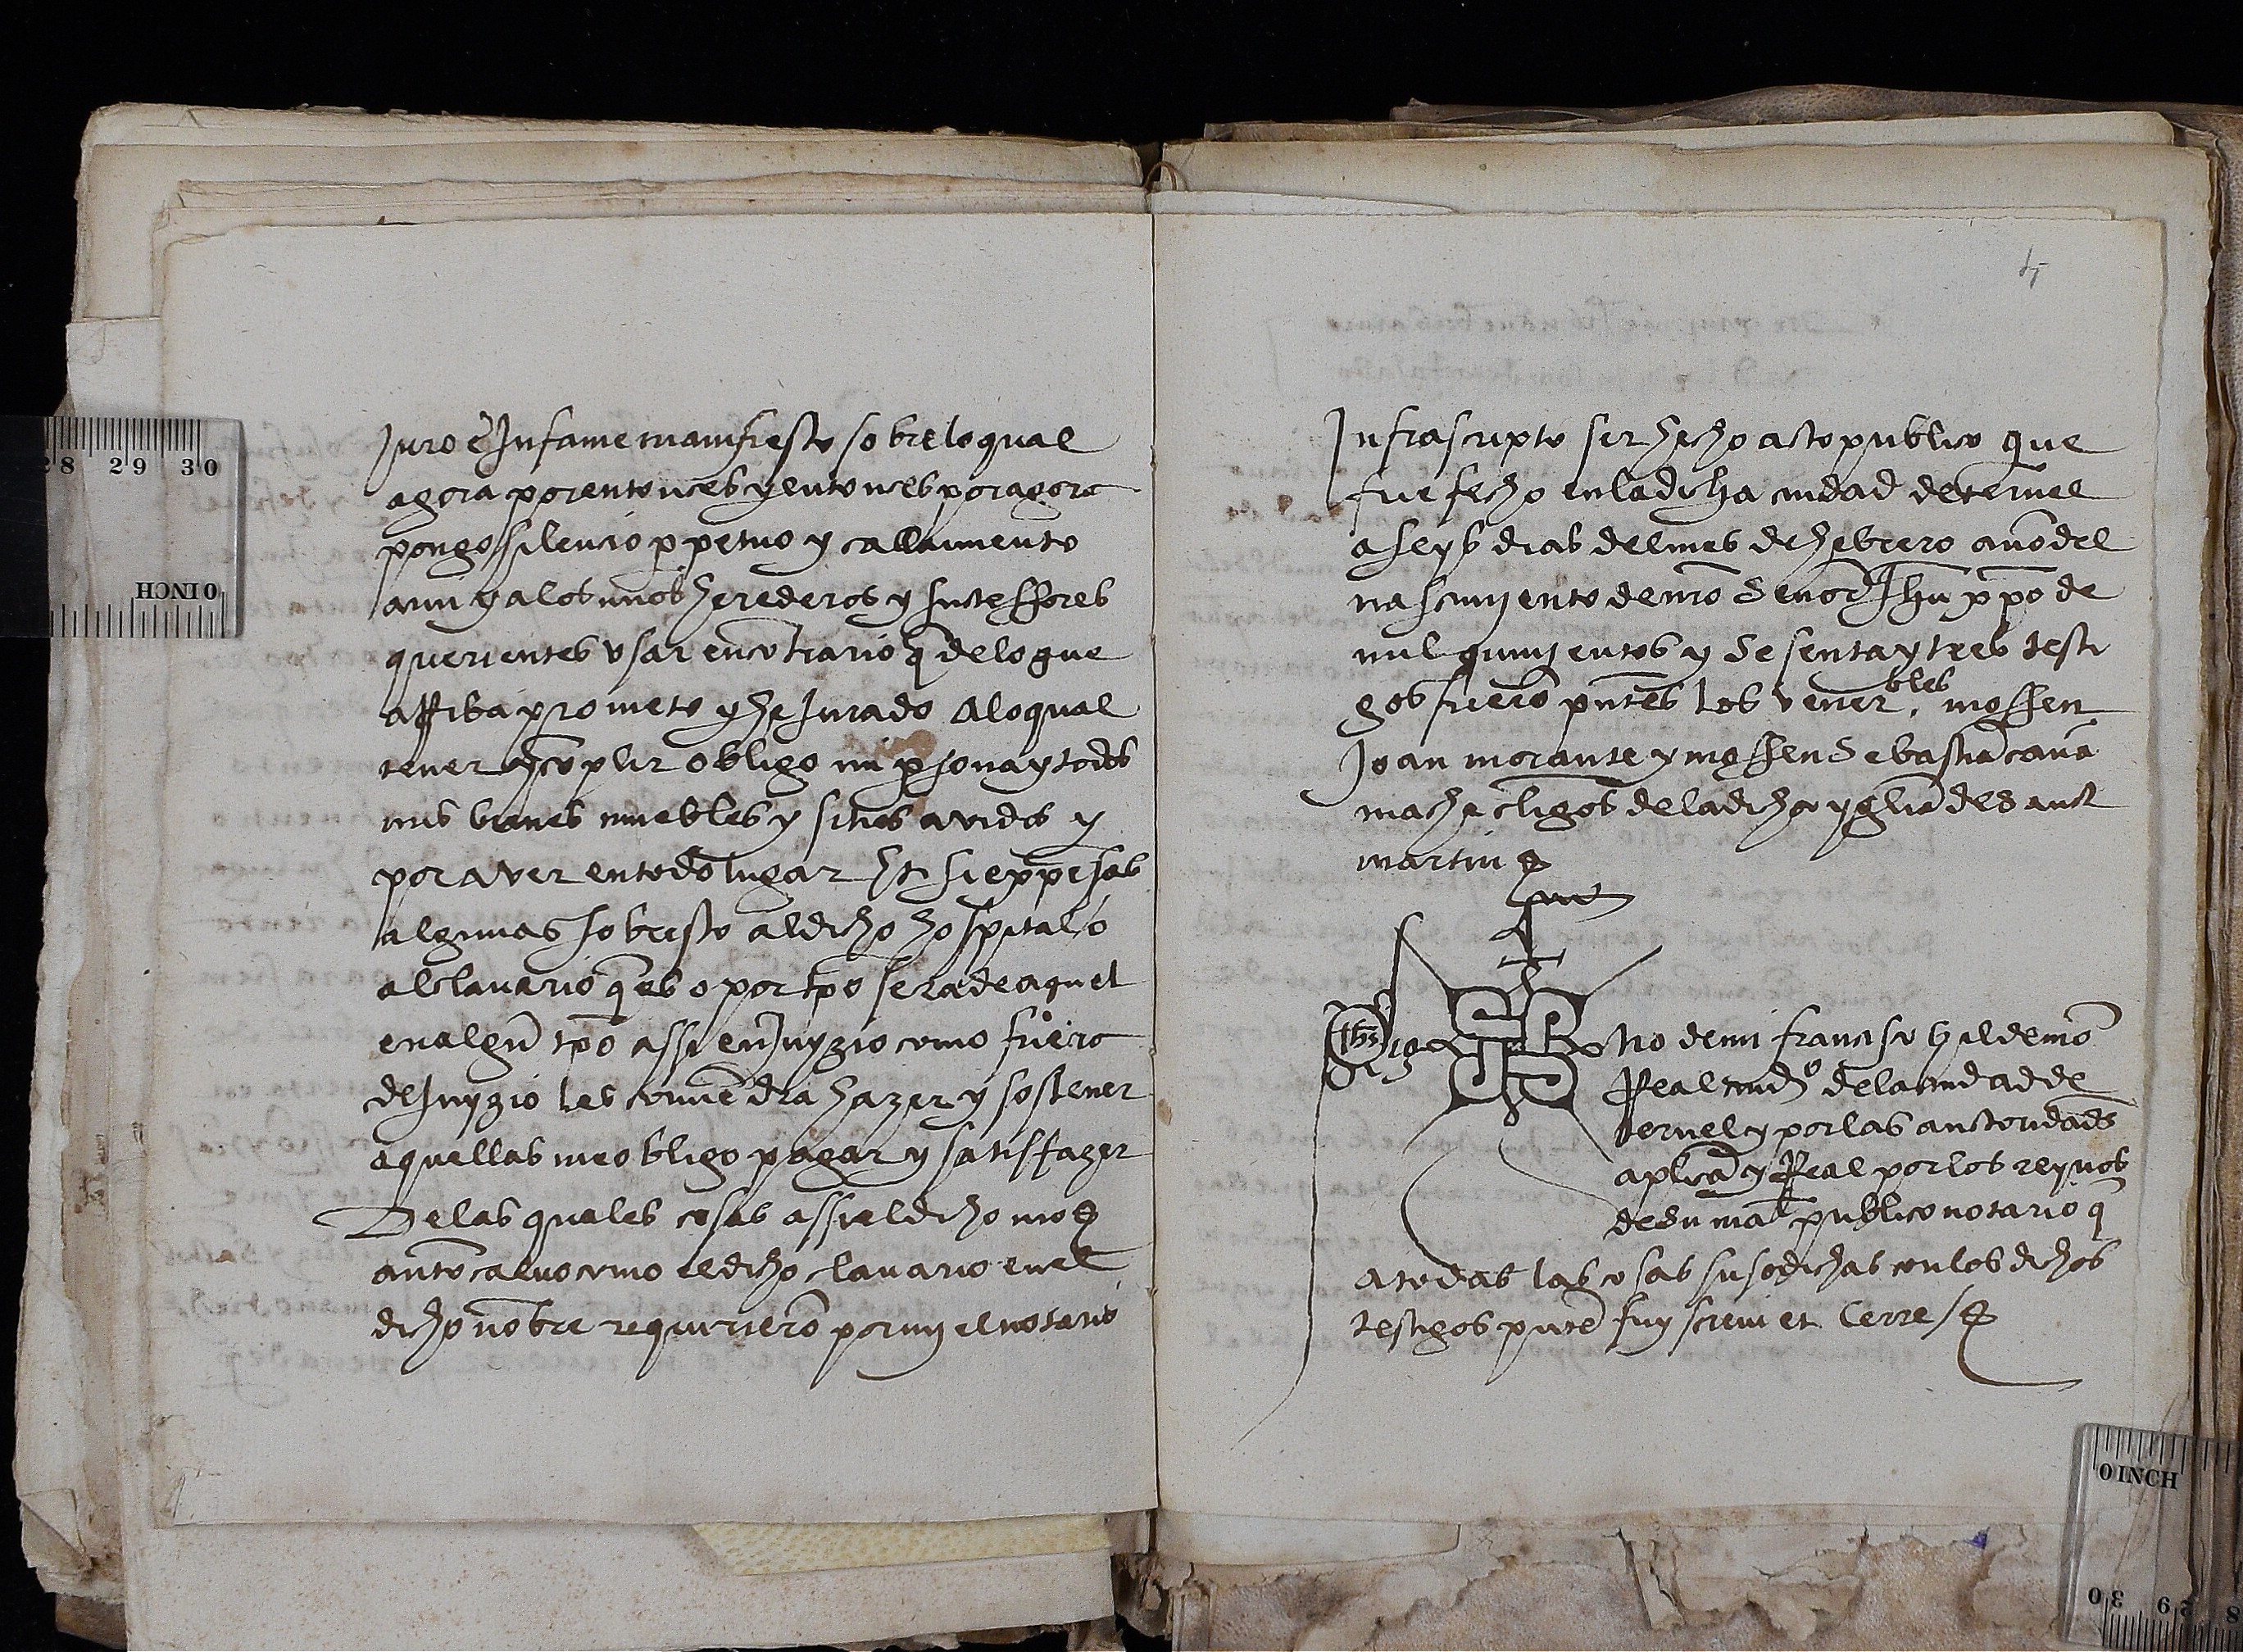 Juro e Infame manifiesto sobre lo qual
agora por entonces y entonces por agora
pongo silencio ppetuo y callamiento
a mi y a los mios herederos y successores
querientes usar en contrario q̃ de lo que
arriba prometo y he Jurado A lo qual
tener y cõplir obligo mi psona y todos
mis bienes muebles y sitios avidos y
por aver en todo lugar Et si exppesas
algunas sobresto al dicho hospital o
al clavario q̃ es o por tp̃o sera de aquel
en algũ tp̃o assi en Juyzio como fuera
de Juyzio les convẽdra hazer y sostener
aquellas me obligo pagar y satisffazer
De las quales cosas assi el dicho mos
antõ calvo como el dicho clavario en el
dicho nõbre requirierõ por my el notario
4
Infrascripto ser hecho acto publico que
fue fecho en la dicha ciudad de teruel
a seys dias del mes de hebrero año del
nascimyento de nrõ Señor Jhũ xp̃o de
mil quinyentos y Sesenta y tres testi
gos fuerõ pñtes los vener.bles mossen
Joan morante y mossen Sebastiã cava
mache cligos de la dicha yglia de Sanct
martin
Sig no de mi francisco gil de mõ
Real ciud.º de la ciudad de
teruel y por las auctoridades
aplicã y Real por los reynos
de Su mat publico notario q̃
A todas las cosas susodichas con los dichos
testigos pñte fuy screvi et Cerre
28 29 30
0 INCH
0 INCH
30 29 28